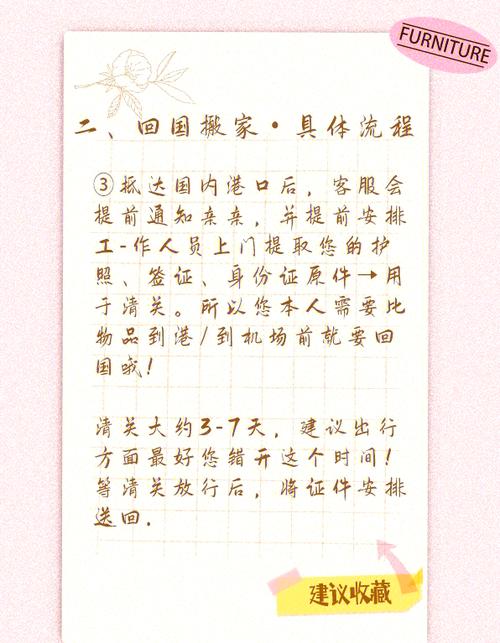 FURNITURE
二、回国搬家·具体流程
③抵达国内港口后，客服会
提前通知亲亲，并提前安排
工-作人员上门提取您的护
照、签证、身份证原件→用
于清关。所以您本人需要比
物品到港/到机场前就要回
国哦！
清关大约3-7天，建议出行
方面最好您错开这个时间！
等清关放行后，将证件安排
送回.
建议收藏